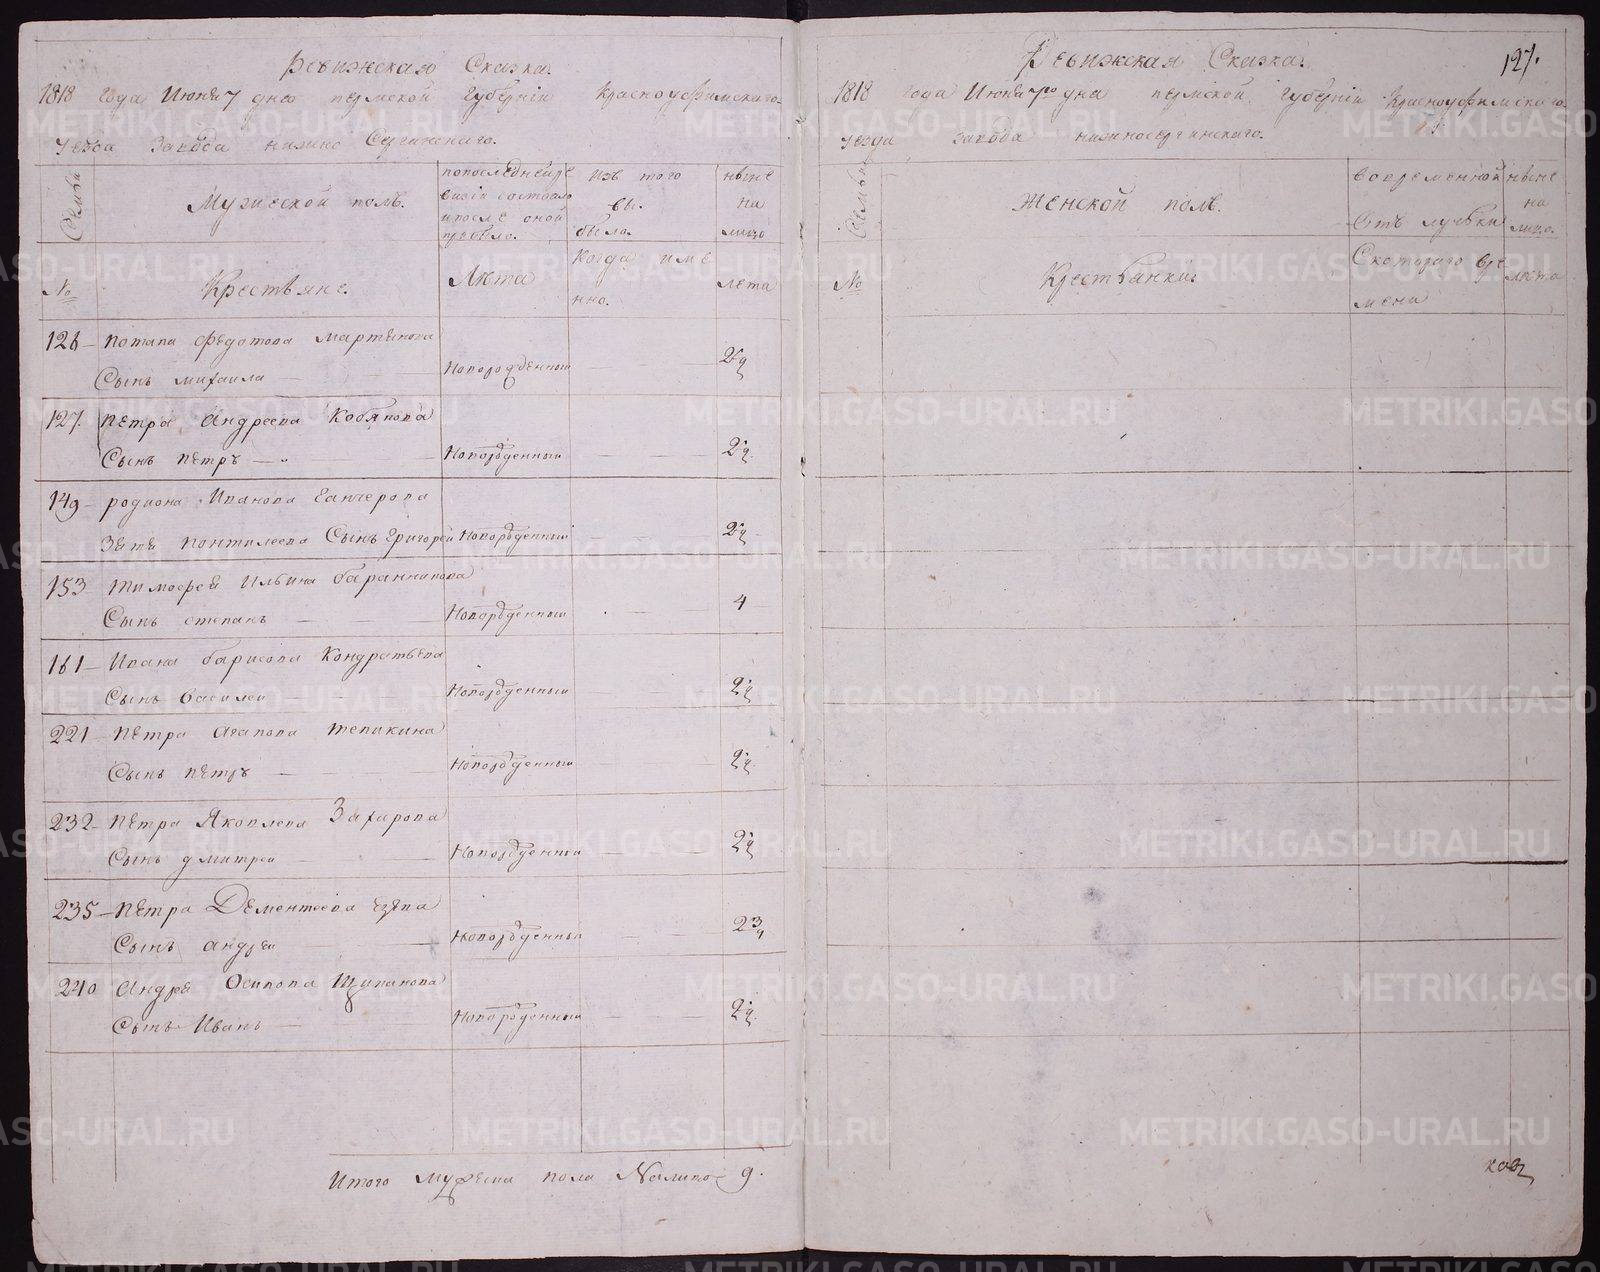 Ревижская Сказка.
1818 года Июня 7 дня пермской Губернiи Красноуфимскаго
уезда завода нижно Сергинскаго.
Семьи
Мужеской полъ.
попоследней ре
визiи состояло
и после оной
прибыло.
изъ того
вы.
было.
ныне
на
лицо
№
Крестьяне.
Лета
Когда имѣ
нно.
лета
126 Потапа Федотова мартьянова
Сынъ михаила Новорожденный 2½
127. Петра Андреева Кобякова
Сынъ петръ Новорожденный 2½
149 родиона Иванова
Зетя понтилеева Сынъ Григорей Новорожденный 2½
153 тимофей Ильина баранникова
Сынъ степанъ Новорожденный 4
161 Ивана барисова Кондратьева
Сынъ василеи Новорожденный 2½
221 петра Агапова тепикина
Сынъ петръ Новорожденный 2½
232 петра Яковлева Захарова
Сынъ дмитреи Новорожденный 2½
235 Петра Дементеева
Сынъ андреи Новорожденный 2¾
240 Андрея Осипова Щипанова
Сынъ Иванъ Новорожденный 2½
Итого мужеска пола Налицо 9.
127.
Ревижская Сказка.
1818 года Июня 7го дня пермской Губернiи Красноуфимскаго
уезда завода нижносергинскаго.
Семьи
Женской полъ.
Вовременной
Отълучьки
ныне
на
лицо.
№
Крестьянки.
Скотораго вре
мени
лета
METRIKI.GASO-URAL.RU